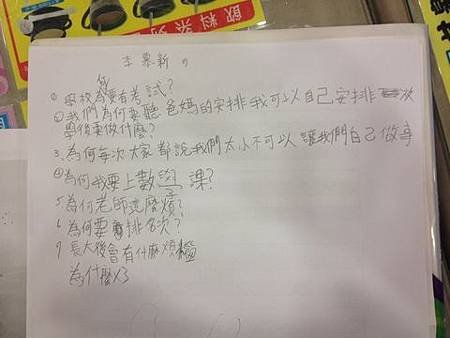 飲料系列
李慕新 的
何
① 學校為要有考試?
② 我們為何要聽爸媽的安排我可以自己安排
學後要做什麼?
3. 為何每次大家都說我們太小不可以讓我們自己做事
④ 為何我要上數學課?
5 為何老師這麼煩?
6 為何要排名次?
7 長大後會有什麼煩惱
為什麼x3